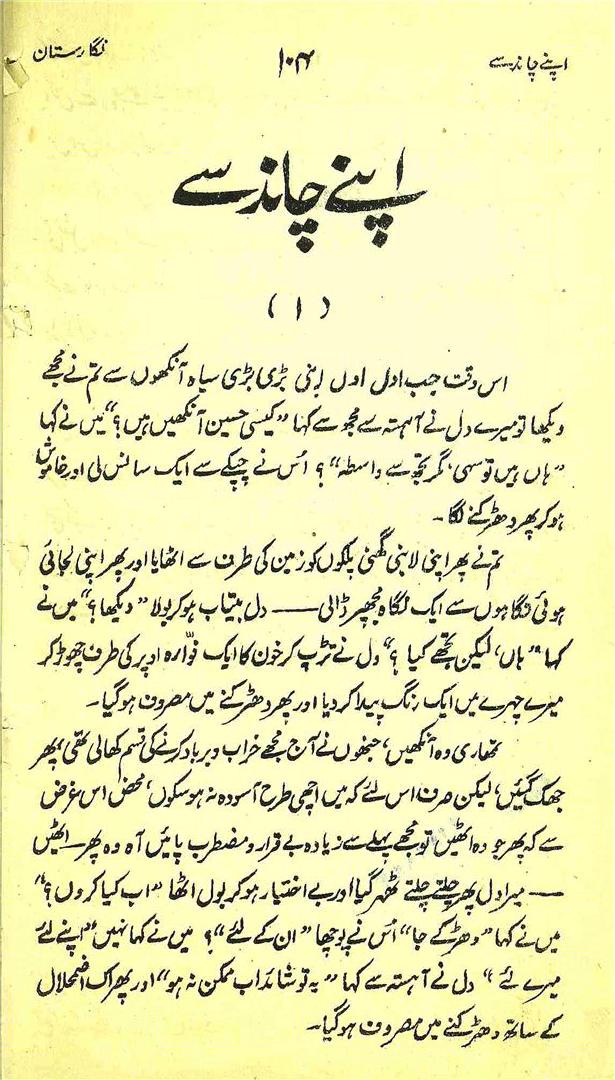 اپنے چاند سے ۱۰۴ نگارستان
اپنے چاند سے
(۱)
اس وقت جب اول اول اپنی بڑی بڑی سیاہ آنکھوں سے تم نے مجھے
دیکھا تو میرے دل نے آہستہ سے مجھ سے کہا "کیسی حسین آنکھیں ہیں؟" میں نے کہا
"ہاں ہیں تو سہی، مگر تجھ سے واسطہ"؟ اُس نے چپکے سے ایک سانس لی اور خاموش
ہو کر پھر دھڑکنے لگا۔
تم نے پھر اپنی لانبی گھنی پلکوں کو زمین کی طرف سے اٹھایا اور پھر اپنی لجائی
ہوئی نگاہوں سے ایک نگاہ مجھپر ڈالی —— دل بیتاب ہو کر بولا "دیکھا؟" میں نے
کہا "ہاں، لیکن تجھے کیا؟" دل نے تڑپ کر خون کا ایک فوّارہ اوپر کی طرف چھوڑ کر
میرے چہرے میں ایک رنگ پیدا کر دیا اور پھر دھڑکنے میں مصروف ہو گیا۔
تمھاری وہ آنکھیں، جنھوں نے آج مجھے خراب و برباد کرنے کی قسم کھالی تھی، پھر
جھک گئیں، لیکن صرف اس لئے کہ میں اچھی طرح آسودہ نہ ہو سکوں، محض اس غرض
سے کہ پھر جو وہ اٹھیں تو مجھے پہلے سے زیادہ بے قرار و مضطرب پائیں آہ وہ پھر اٹھیں
— میرا دل پھر چلتے چلتے ٹھہر گیا اور بے اختیار ہو کر بول اٹھا "اب کیا کروں؟"
میں نے کہا "دھڑکے جا" اُس نے پوچھا "ان کے لئے"؟ میں نے کہا نہیں، "اپنے لئے
میرے لئے" دل نے آہستہ سے کہا "یہ تو شائد اب ممکن نہ ہو" اور پھر اک اضمحلال
کے ساتھ دھڑکنے میں مصروف ہو گیا۔